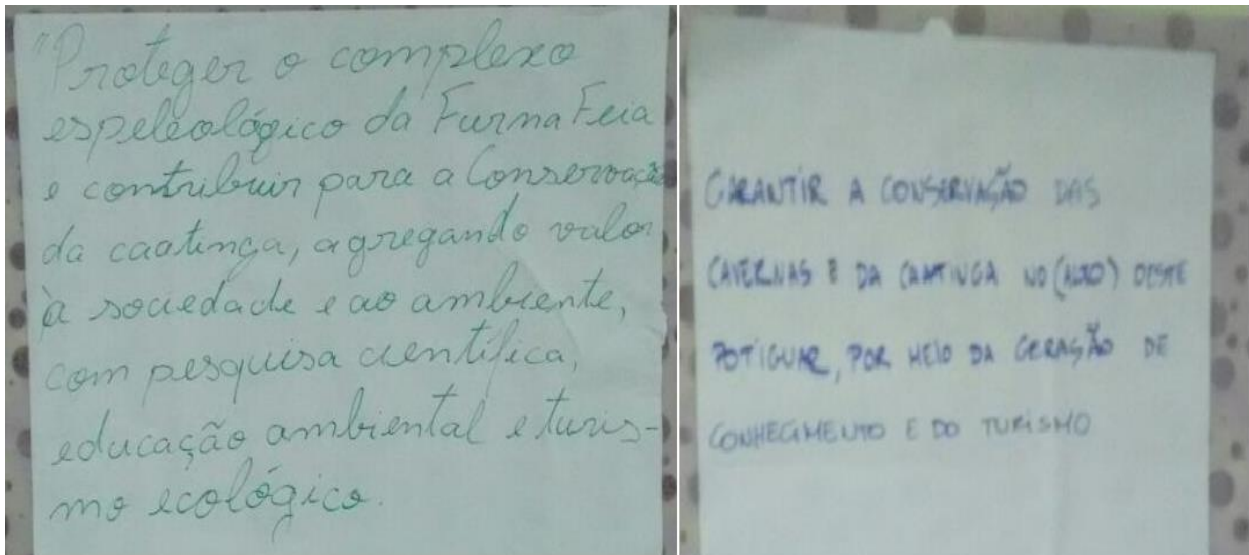 "Proteger o complexo
espeleológico da Furna Feia
e contribuir para a Conservação
da caatinga, agregando valor
à sociedade e ao ambiente,
com pesquisa científica,
educação ambiental e turis-
mo ecológico.
GARANTIR A CONSERVAÇÃO DAS
CAVERNAS E DA CAATINGA NO (ALTO) OESTE
POTIGUAR, POR MEIO DA GERAÇÃO DE
CONHECIMENTO E DO TURISMO